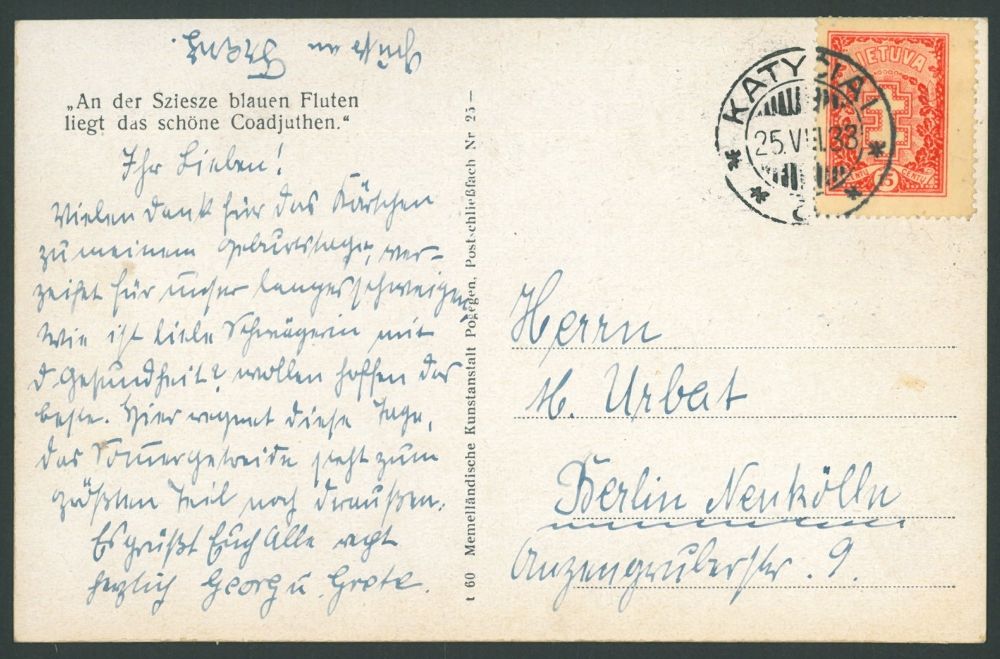 „An der Sziesze blauen Fluten
liegt das schöne Coadjuthen.“
Ihr Lieben!
Vielen Dank für das Kärtchen
zu meinem Geburtstage, ver-
zeihet für unser langes schweigen,
Wie ist liebe Schwägerin mit
d Gesundheit?, wollen hoffen das
beste. Hier regnet diese Tage,
das Sommergetreide steht zum
größten Teil noch draußen.
Es grüßt Euch Alle recht
herzlich Georg u. Grete.
t 60 Memelländische Kunstanstalt Pogegen, Postschließfach Nr 25 –
LIETUVA
15
CENTŲ
KATYČIAI
25.VIII.38
Herrn
M. Urbat
Berlin Neukölln
Anzengruberstr. 9.